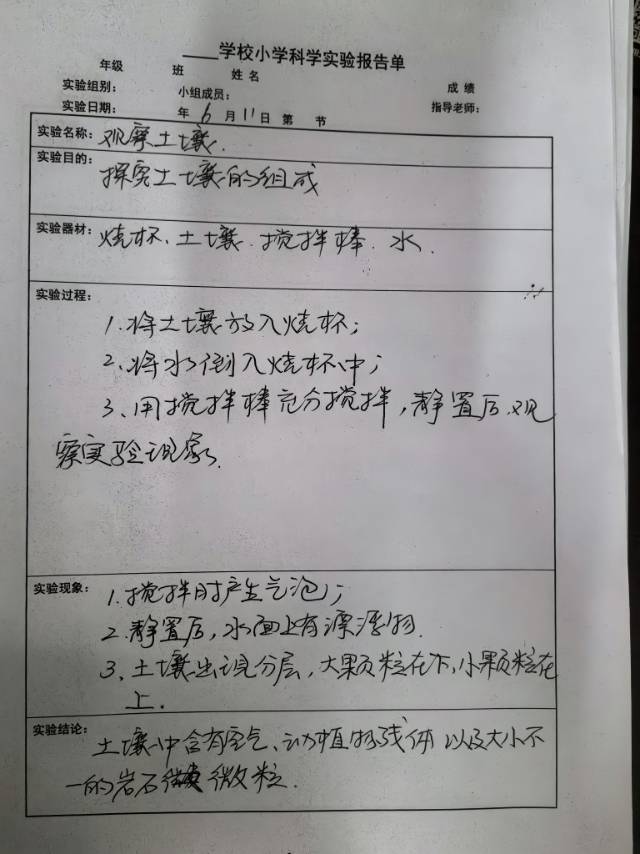 ____学校小学科学实验报告单
年级 班 姓名
实验组别： 小组成员： 成绩
实验日期： 年 6 月 11 日 第 节 指导老师：
实验名称：观察土壤.
实验目的：
探究土壤的组成
实验器材：烧杯、土壤、搅拌棒、水.
实验过程：
1.将土壤放入烧杯；
2.将水倒入烧杯中；
3、用搅拌棒充分搅拌，静置后，观
察实验现象.
实验现象：1.搅拌时产生气泡；
2.静置后，水面上有漂浮物.
3、土壤出现分层，大颗粒在下，小颗粒在
上.
实验结论：土壤中含有空气、动植物残体以及大小不
一的岩石微粒.